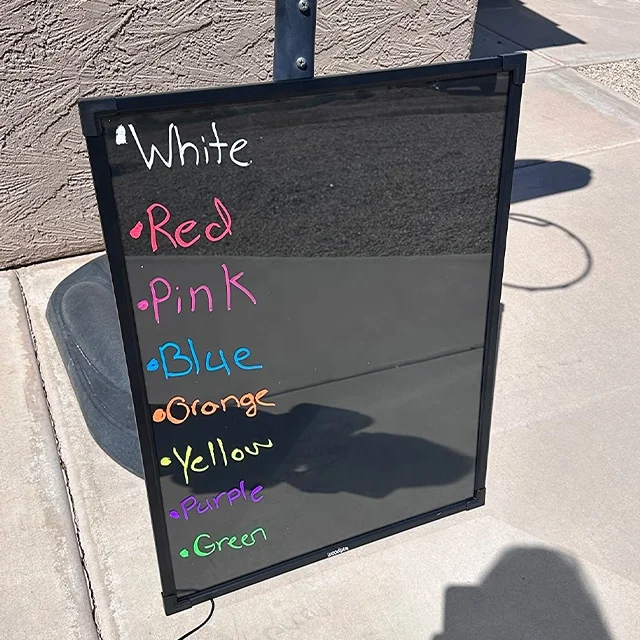 •White
•Red
•Pink
•Blue
•Orange
•Yellow
•Purple
•Green
woodsam